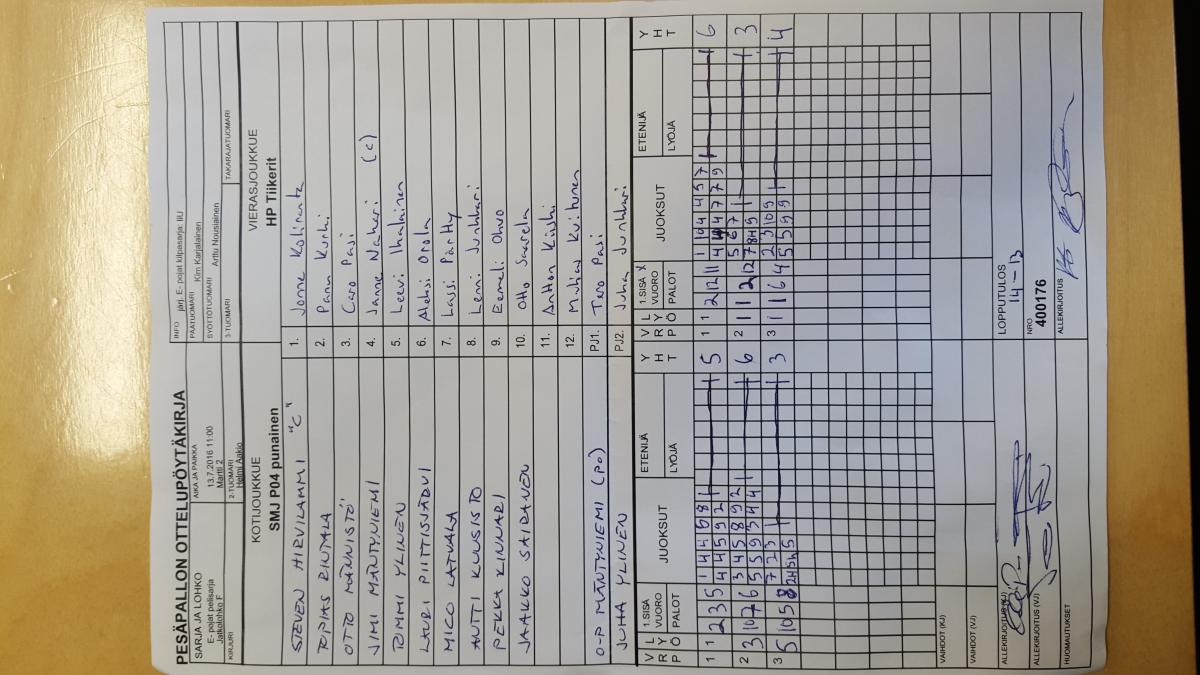 PESÄPALLON OTTELUPÖYTÄKIRJA
SARJA JA LOHKO
E- pojat pelisarja
Jatkolohko F
KIRJURI
AIKA JA PAIKKA
13.7.2016 11:00
Martti 2
2-TUOMARI
Helmi Aakio
INFO järj. E- pojat kilpasarja: IiU
PÄÄTUOMARI Kim Karjalainen
SYÖTTÖTUOMARI Arttu Nousiainen
3-TUOMARI
TAKARAJATUOMARI
KOTIJOUKKUE
SMJ P04 punainen
VIERASJOUKKUE
HP Tiikerit
STEVEN HIRVILAMMI "C"
1. Jonne Kolinranta
TOPIAS RINTALA
2. Panu Kurki
OTTO MÄNNISTÖ
3. Caro Pasi
JIMI MÄNTYNIEMI
4. Janne Nahari (c)
TOMMI YLINEN
5. Leevi Ihalainen
LAURI PIITTISJÄRVI
6. Aleksi Orola
MICO LATVAKA
7. Lassi Pärtty
ANTTI KUUSISTO
8. Lenni Junkkari
PEKKA KINNARI
9. Eemeli Ohvo
JAAKKO SAIRANEN
10. Otto Saarela
11. Anton Kiiski
12. Muhias Kuitunen
O-P MÄNTYNIEMI (PO)
PJ1. Tero Pasi
JUHA YLINEN
PJ2. Juha Junkkari
V R P
L Y Ö
1.SISÄ
VUORO
PALOT
JUOKSUT
ETENIJÄ
LYÖJÄ
Y H T
V R P
L Y Ö
1.SISÄ X
VUORO
PALOT
JUOKSUT
ETENIJÄ
LYÖJÄ
Y H T
1 1 2 3 5
1 4 4 5 8
4 4 5 9 2
5
1 1 2 12 11
1 10 4 4 5 7
6
2 3 10 7 6
3 4 5 8 9 2
5 5 9 3 4 4
6
2 1 1 2 12
5 6 7
3
3 5 10 5 8
7 2 3
3
3 1 1 6 4
2 3 10 9
5 5 9 9
4
VAIHDOT (KJ)
VAIHDOT (VJ)
ALLEKIRJOITUS (KJ)
ALLEKIRJOITUS (VJ)
HUOMAUTUKSET
LOPPUTULOS
14 - 13
NRO
400176
ALLEKIRJOITUS